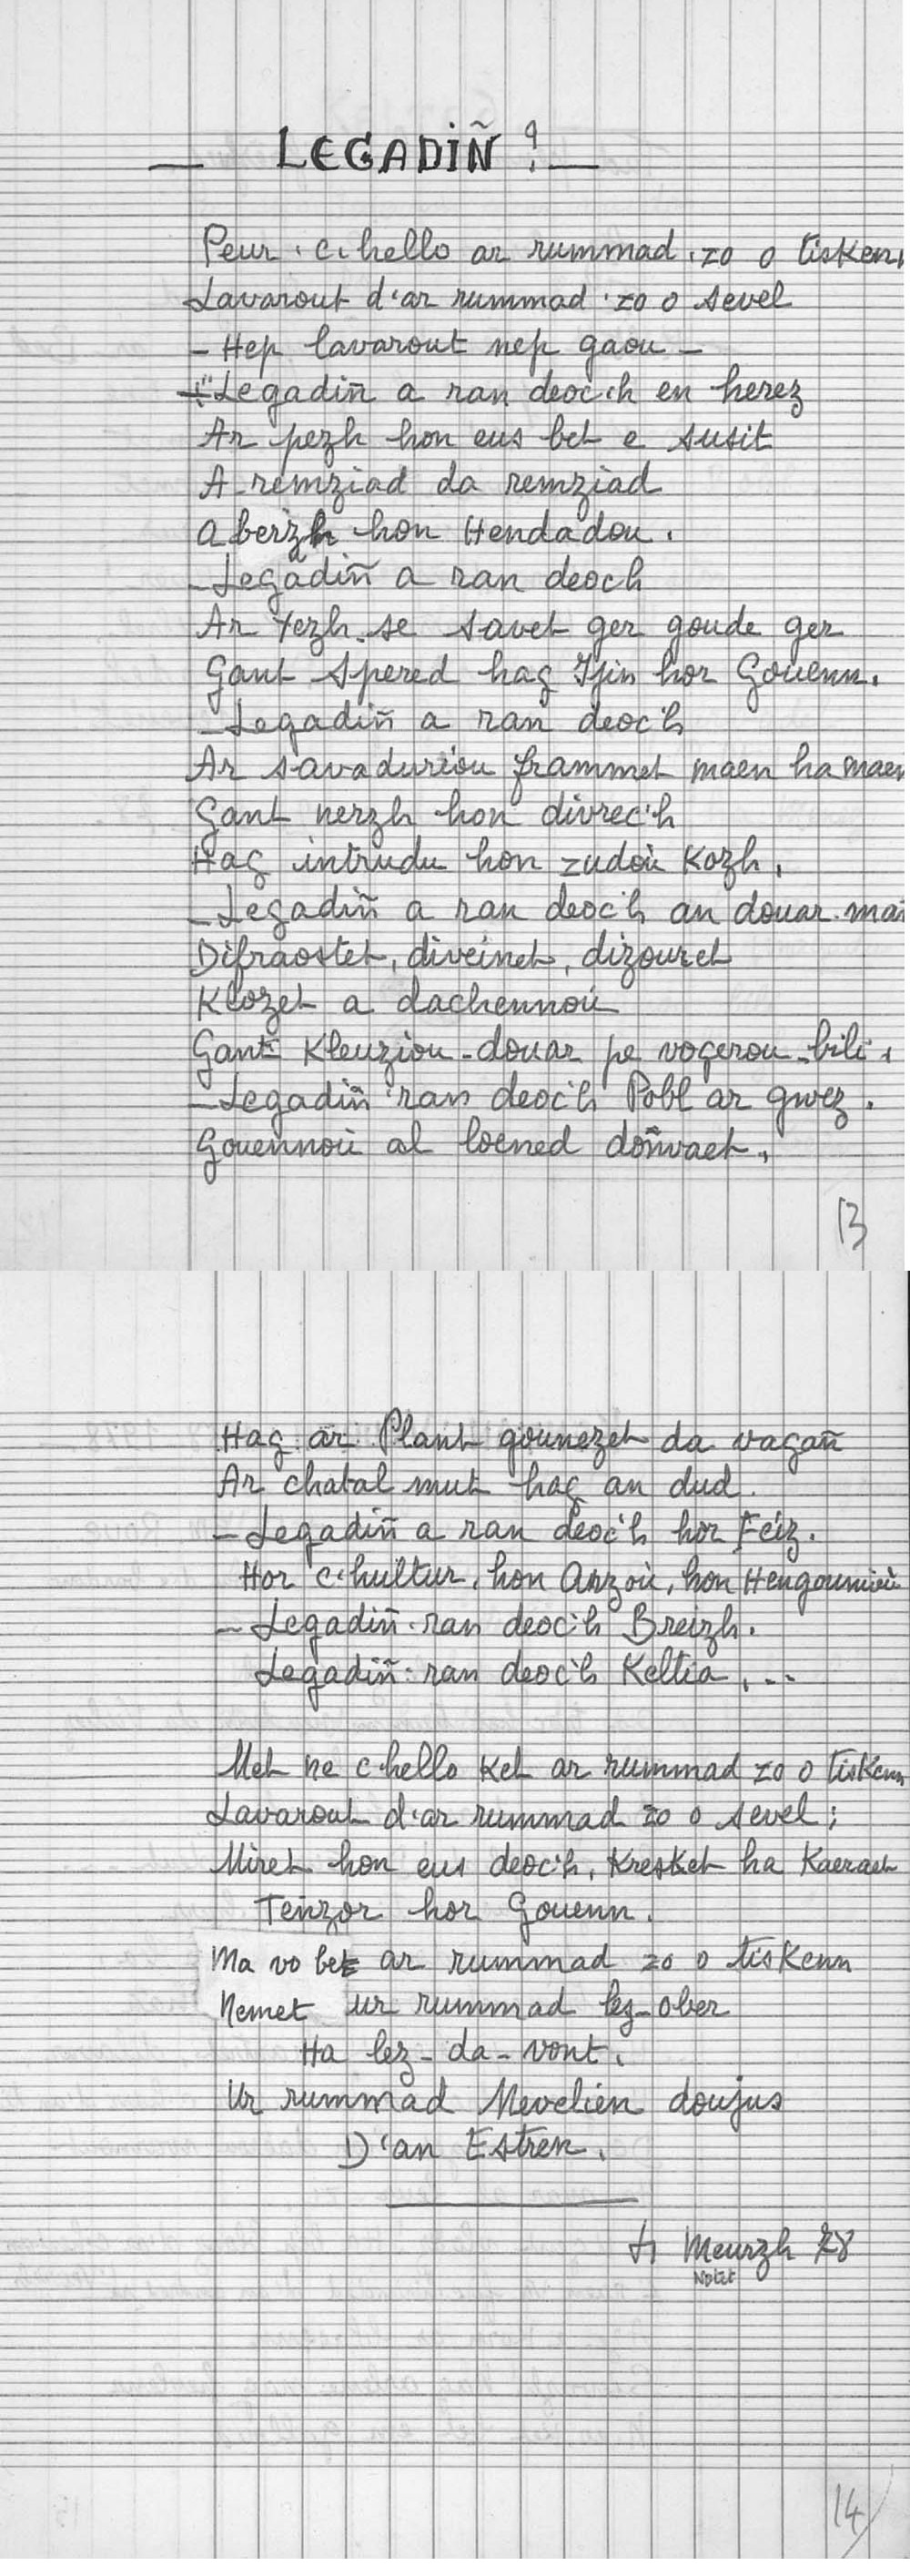 — LEGADIÑ ? —
Peur c'hello ar rummad zo o tiskenn
Lavarout d'ar rummad zo o sevel
- Hep lavarout nep gaou -
- "Legadiñ a ran deoc'h en herez
Ar pezh hon eus bet e susit
A remziad da remziad
a berzh hon Hendadou.
- Legadiñ a ran deoch
Ar Yezh-se savet ger goude ger
Gant Spered hag Ijin hor Gouenn.
- Legadiñ a ran deoc'h
Ar savaduriou frammet maen ha maen
Gant nerzh hon divrec'h
Hag intrudu hon zudoù Kozh.
- Legadiñ a ran deoc'h an douar-mañ
Difraostet, diveinet, dizouret
Klozet a dachennoù
Gant Kleuziou-douar pe vogerou-bili.
- Legadiñ 'ran deoc'h Pobl ar gwez.
Gouennoù al loened doñvaet.
13
Hag ar Plant gounezet da vagañ
Ar chatal mut hag an dud.
- Legadiñ a ran deoc'h hor Feiz.
Hor c'hultur, hon Anzoù, hon Hengounioù
- Legadiñ 'ran deoc'h Breizh.
Legadiñ 'ran deoc'h Keltia...
Met ne c'hello Ket ar rummad zo o tiskenn
Lavarout d'ar rummad zo o sevel;
Miret hon eus deoc'h, Kresket ha Kaeraet
Teñzor hor Gouenn.
Ma vo bet ar rummad zo o tiskenn
Nemet ur rummad lez-ober
Ha lez-da-vont.
Ur rummad Mevelien doujus
D'an Estren.
Meurzh 78
Notet
14